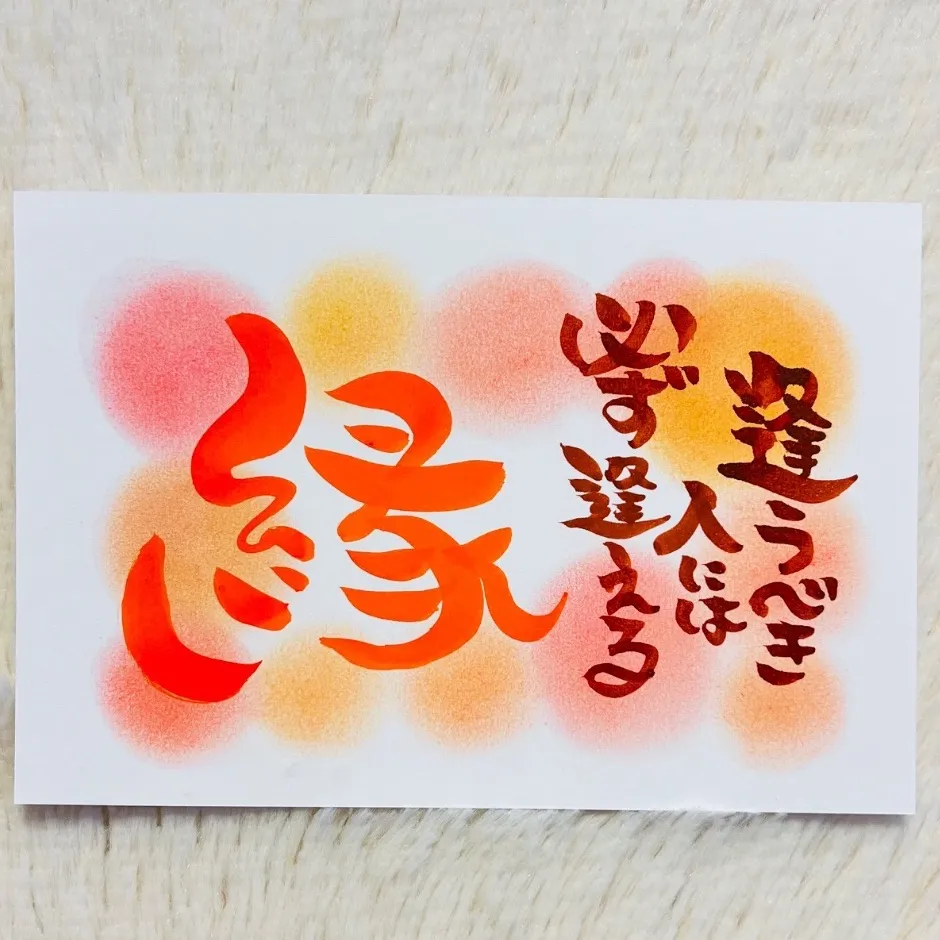 逢うべき
人には
必ず
逢える
縁